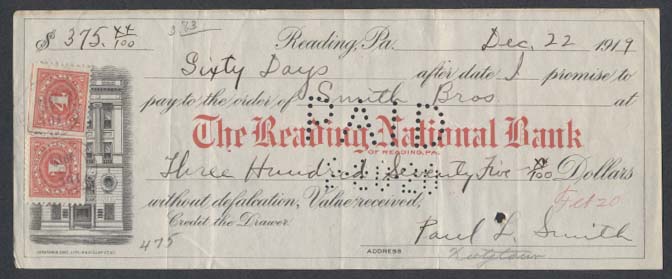 $ 375. xx/100 383 Reading, Pa. Dec. 22 1919
Sixty Days after date I promise to
pay to the order of Smith Bros at
PAID
The Reading National Bank
OF READING, PA.
Three Hundred Seventy Five xx/100 Dollars
without defalcation, Value received, Feb 20
Credit the Drawer.
Paul L. Smith
475 ADDRESS Kutztown